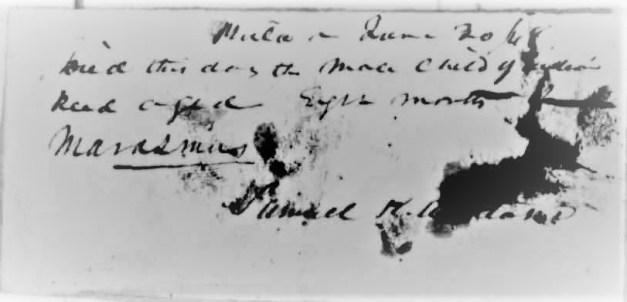 Phila June 20/68
Died this day the Male Child of
Reed aged Eight months
Marasmus
Samuel